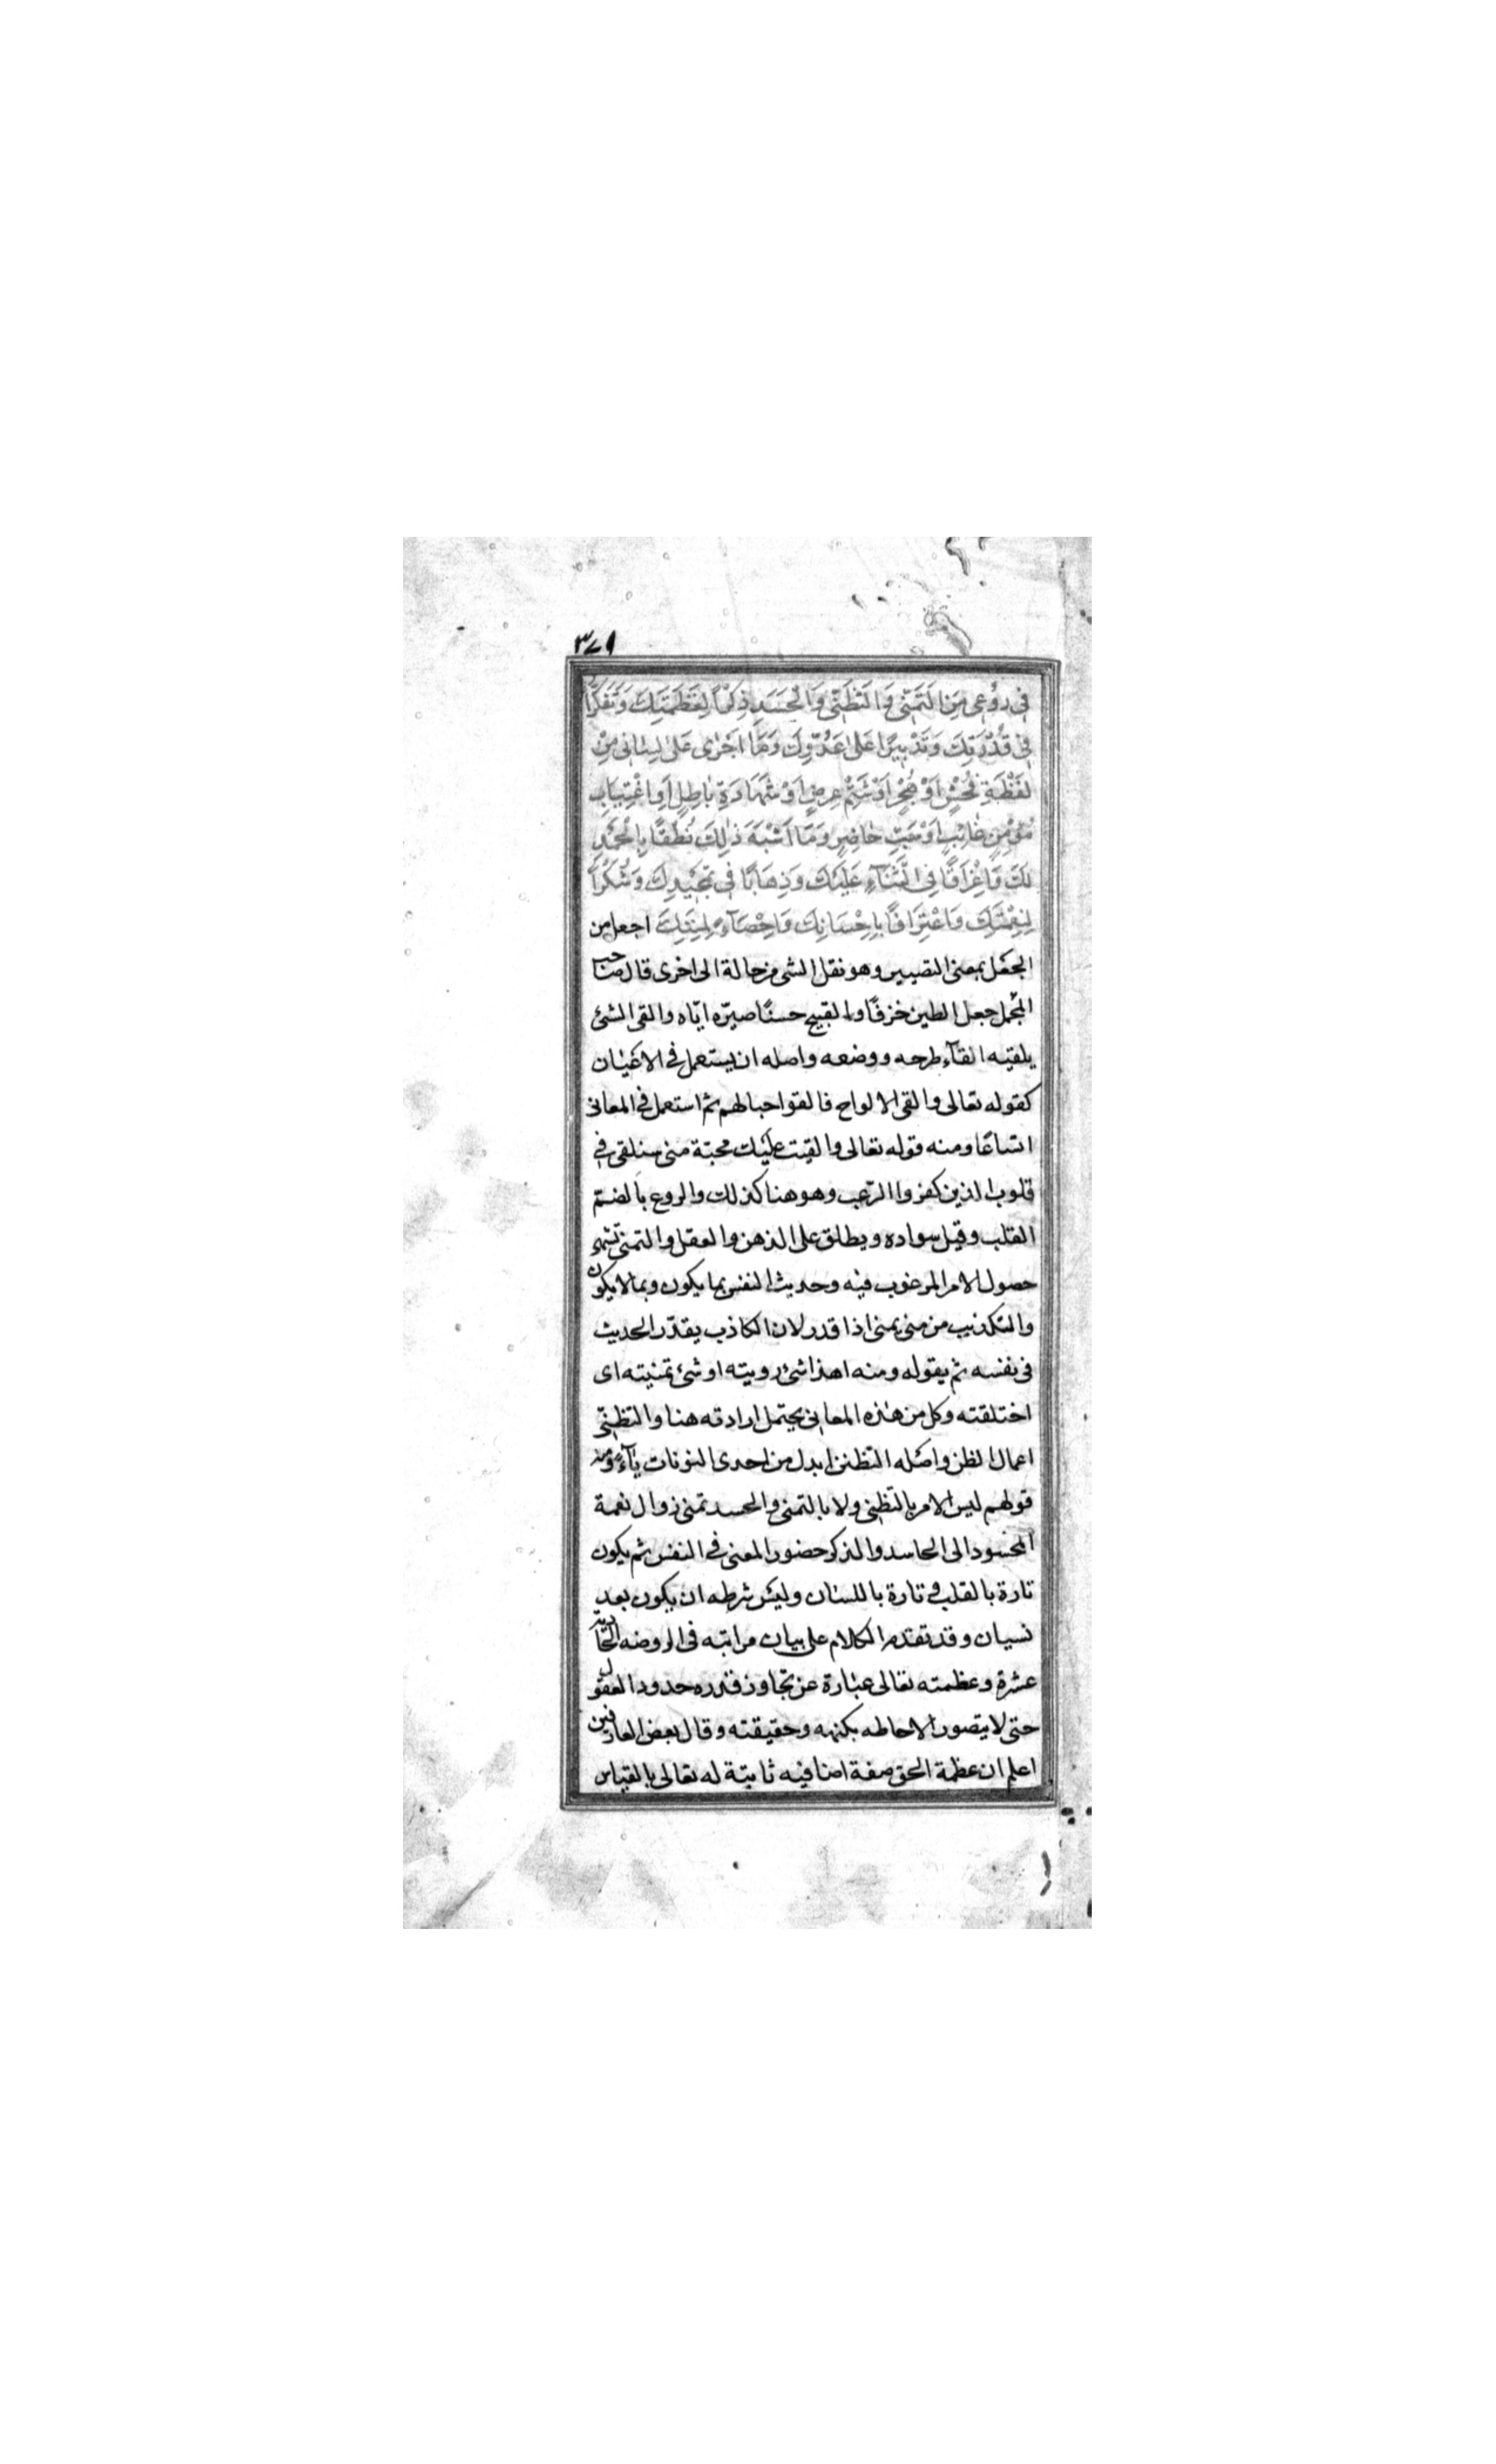 ٣٧٩
فِي رُوعِي مِنَ التَّمَنِّي وَالتَّظَنِّي وَالْحَسَدِ ذِكْرًا لِعَظَمَتِكَ وَتَفَكُّرًا
فِي قُدْرَتِكَ وَتَدْبِيرًا عَلَى عَدُوِّكَ وَمَا اَجْرَى عَلَى لِسَانِي مِنْ
لَفْظَةِ فُحْشٍ اَوْ هُجْرٍ اَوْ شَتْمِ عِرْضٍ اَوْ شَهَادَةِ بَاطِلٍ اَوِ اغْتِيَابِ
مُؤْمِنٍ غَائِبٍ اَوْ سَبِّ حَاضِرٍ وَمَا اَشْبَهَ ذَلِكَ نُطْقًا بِالْحَمْدِ
لَكَ وَاِغْرَاقًا فِي الثَّنَآءِ عَلَيْكَ وَذِهَابًا فِي تَمْجِيدِكَ وَشُكْرًا
لِنِعْمَتِكَ وَاعْتِرَافًا بِاِحْسَانِكَ وَاِحْصَآءً لِمِنَنِكَ اجعل من
الجعل بمعنى التصيير وهو نقل الشى من حالة الى اخرى قال صاحب
المجمل جعل الطين خزفًا والقبيح حسنًا صيّره ايّاه والقى الشئ
يلقيه القآء طرحه ووضعه واصله ان يستعمل فى الاعيان
كقوله تعالى والقى الالواح فالقوا حبالهم ثم استعمل فى المعانى
اتساعًا ومنه قوله تعالى والقيت عليك محبّة منى سنلقى فى
قلوب الذين كفروا الرّعب وهو هنا كذلك والروع بالضمّ
القلب وقيل سواده ويطلق على الذهن والعقل والتمنى تشهى
حصول الامر المرغوب فيه وحديث النفس بما يكون وبما لا يكون
والتكذيب من منى يمنى اذا قدر لان الكاذب يقدّر الحديث
فى نفسه ثم يقوله ومنه اهذا شئ رويته او شئ تمنيته اى
اختلقته وكل من هذه المعانى يحتمل ارادته هنا والتظنّى
اعمال الظن واصله التظنن ابدل من احدى النونات يآءً ومنه
قولهم ليس الامر بالتظنى ولا بالتمنى والحسد تمنى زوال نعمة
المحسود الى الحاسد والذكر حضور المعنى فى النفس ثم يكون
تارة بالقلب وتارة باللسان وليس شرطه ان يكون بعد
نسيان وقد تقدم الكلام على بيان مراتبه فى الروضه الحادية
عشرة وعظمته تعالى عبارة عن تجاوز قدره حدود العقول
حتى لا يتصور الاحاطه بكنهه وحقيقته وقال بعض العارفين
اعلم ان عظمة الحق صفة اضافيه ثابتة له تعالى بالقياس